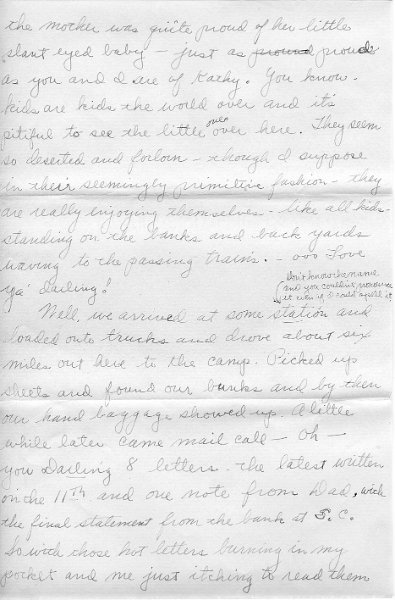 the mother was quite proud of her little
slant eyed baby – just as pround proud
as you and I are of Kathy. You know.
kids are kids the world over and it's
pitiful to see the little over
over here. They seem
so deserted and forlorn – though I suppose
in their seemingly primitive fashion – they
are really enjoying themselves – like all kids.
standing on the banks and back yards
waving to the passing trains. – ooo Love
ya' darling!
Don't know the name
and you couldn't pronounce
it even if I could spell it
Well, we arrived at some station and
loaded onto trucks and drove about six
miles out here to the camp. Picked up
sheets and found our bunks and by then
our hand baggage showed up. A little
while later came mail call – Oh –
you Darling 8 letters. The latest written
on the 11th and one note from Dad, with
the final statement from the bank at S.C.
So with those hot letters burning in my
pocket and me just itching to read them